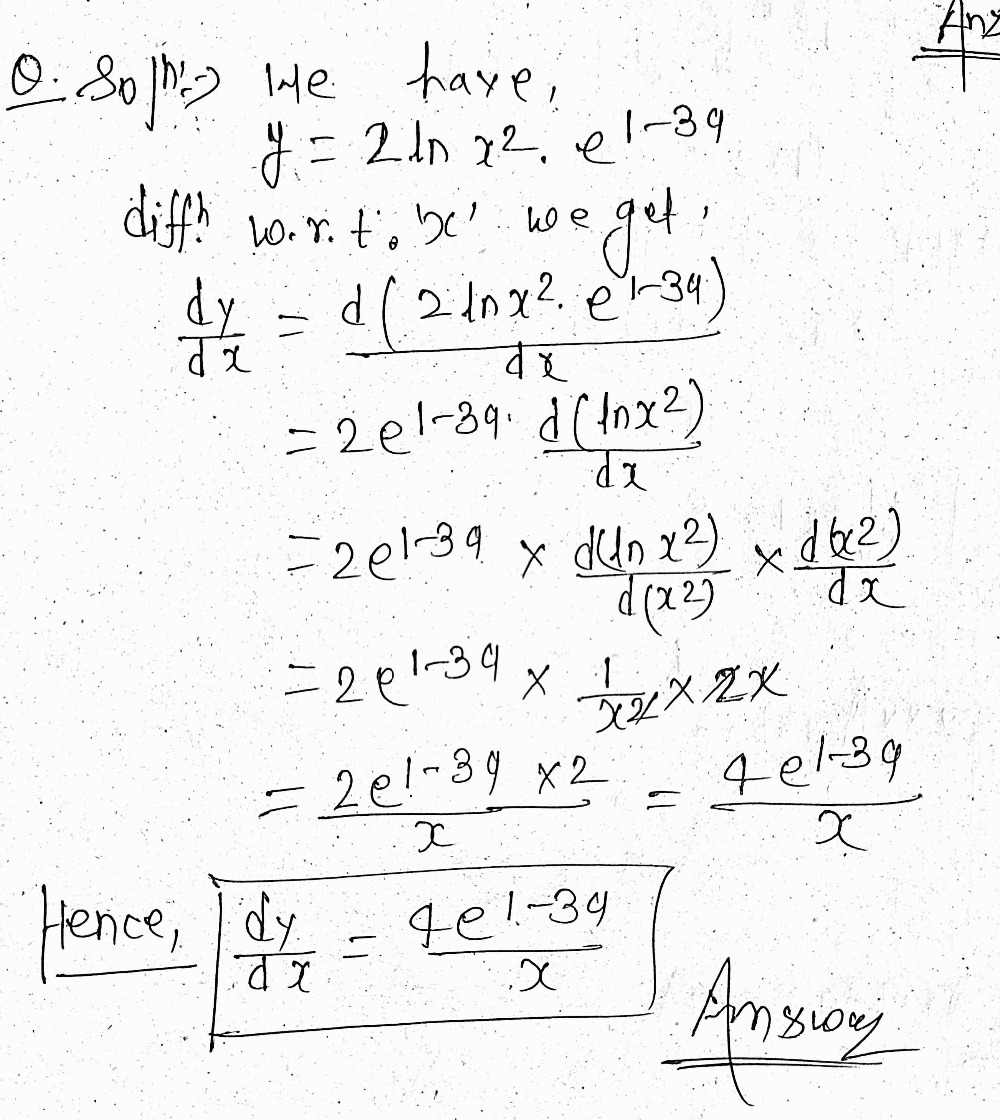 Ans
Q. Solⁿ:→ We have,
y = 2 ln x². e^1-39
diffⁿ. w.r.t. 'x' we get,
dy/dx = d(2 ln x². e^1-39)/dx
= 2e^1-39. d(ln x²)/dx
= 2e^1-39 × d(ln x²)/d(x²) × d(x²)/dx
= 2e^1-39 × 1/x² × 2x
= 2e^1-39 ×2/x = 4e^1-39/x
Hence, dy/dx = 4e^1-39/x
Answer